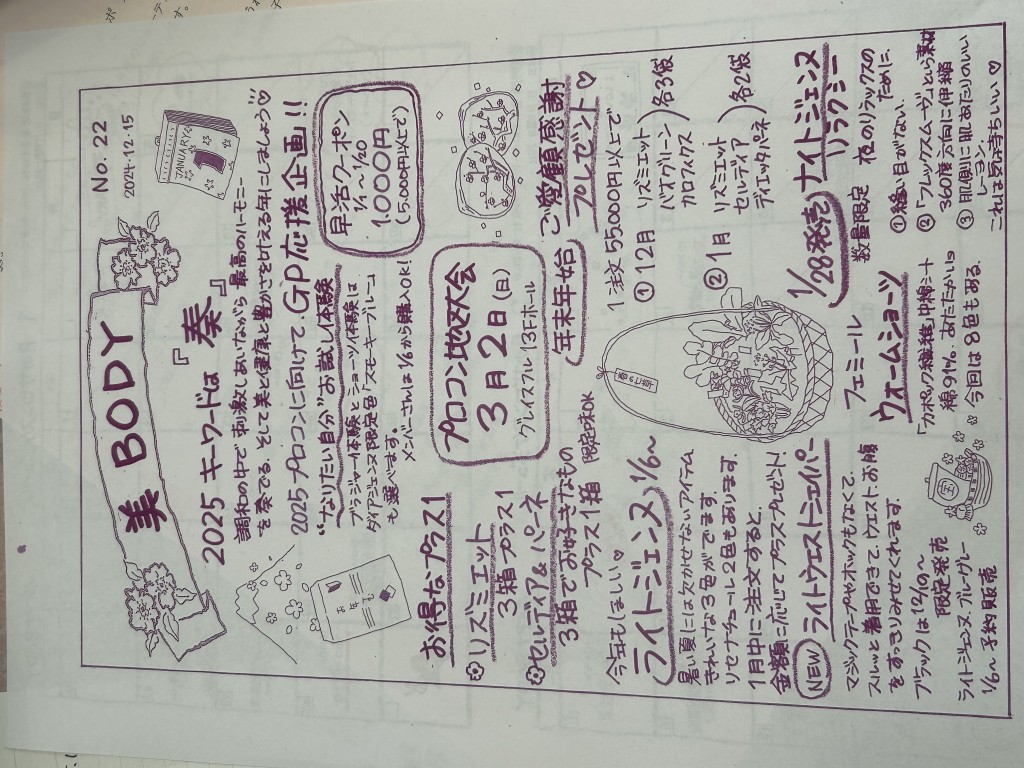 美 BODY
No. 22
2024.12.15
JANUARY
2025 キーワードは『奏』
調和の中で刺激しあいながら 最高のハーモニー
を奏でる。そして美と健康と豊かさを叶える年にしましょう♡
2025 プロコンに向けて、GP応援企画!!
"なりたい自分"お試し体験
ブラジャー体験とショーツ体験は
ダイアジェンヌ限定色「スモーキーブルー」
も選べます。
メンバーさんは1/6から購入OK!
早活クーポン
1/4〜1/20
1,000円
(5,000円以上で)
お年玉
お得なプラス1
リズミエット
3箱プラス1
セルディア&パーネ
3箱でお好きなもの
プラス1箱
限定味OK
プロコン地区大会
3月2日(日)
グレイスフル/13Fホール
年末年始 ご愛顧感謝
プレゼント♡
1ご注文 55,000円以上で
① 12月 リズミエット
バイオグリーン
カロフィクス
各3個
② 1月 リズミエット
セルディア
ディエッタパーネ
各2個
今年もほしい♡
ライトジェンヌ 1/6〜
暑い夏には欠かせないアイテム
きれいな3色がでます。
リセラチュール2色もあります。
1月中に注文すると、
金額に応じてプラスプレゼント!
NEW ライトウエストニッパー
マジックテープやホックもなくて、
スルッと着用できて、ウエスト、お腹
をすっきりみせてくれます。
ブラックは12/10〜
限定発売
ライトジェンヌ ブレーヴァー
1/6〜予約販売
宝
1/28発売 ナイトジェンヌ
リラクシー
数量限定 夜のリラックスの
ために。
①縫い目がない。
②「フレックスムーヴ」という素材
360度 六方向に伸縮
③肌側に肌あたりのいい
レーヨン。
これは気持ちいい♡
フェミール
ウォームショーツ
「カポック繊維」中綿シート
綿91%。あたたかい。
今回は8色もある。